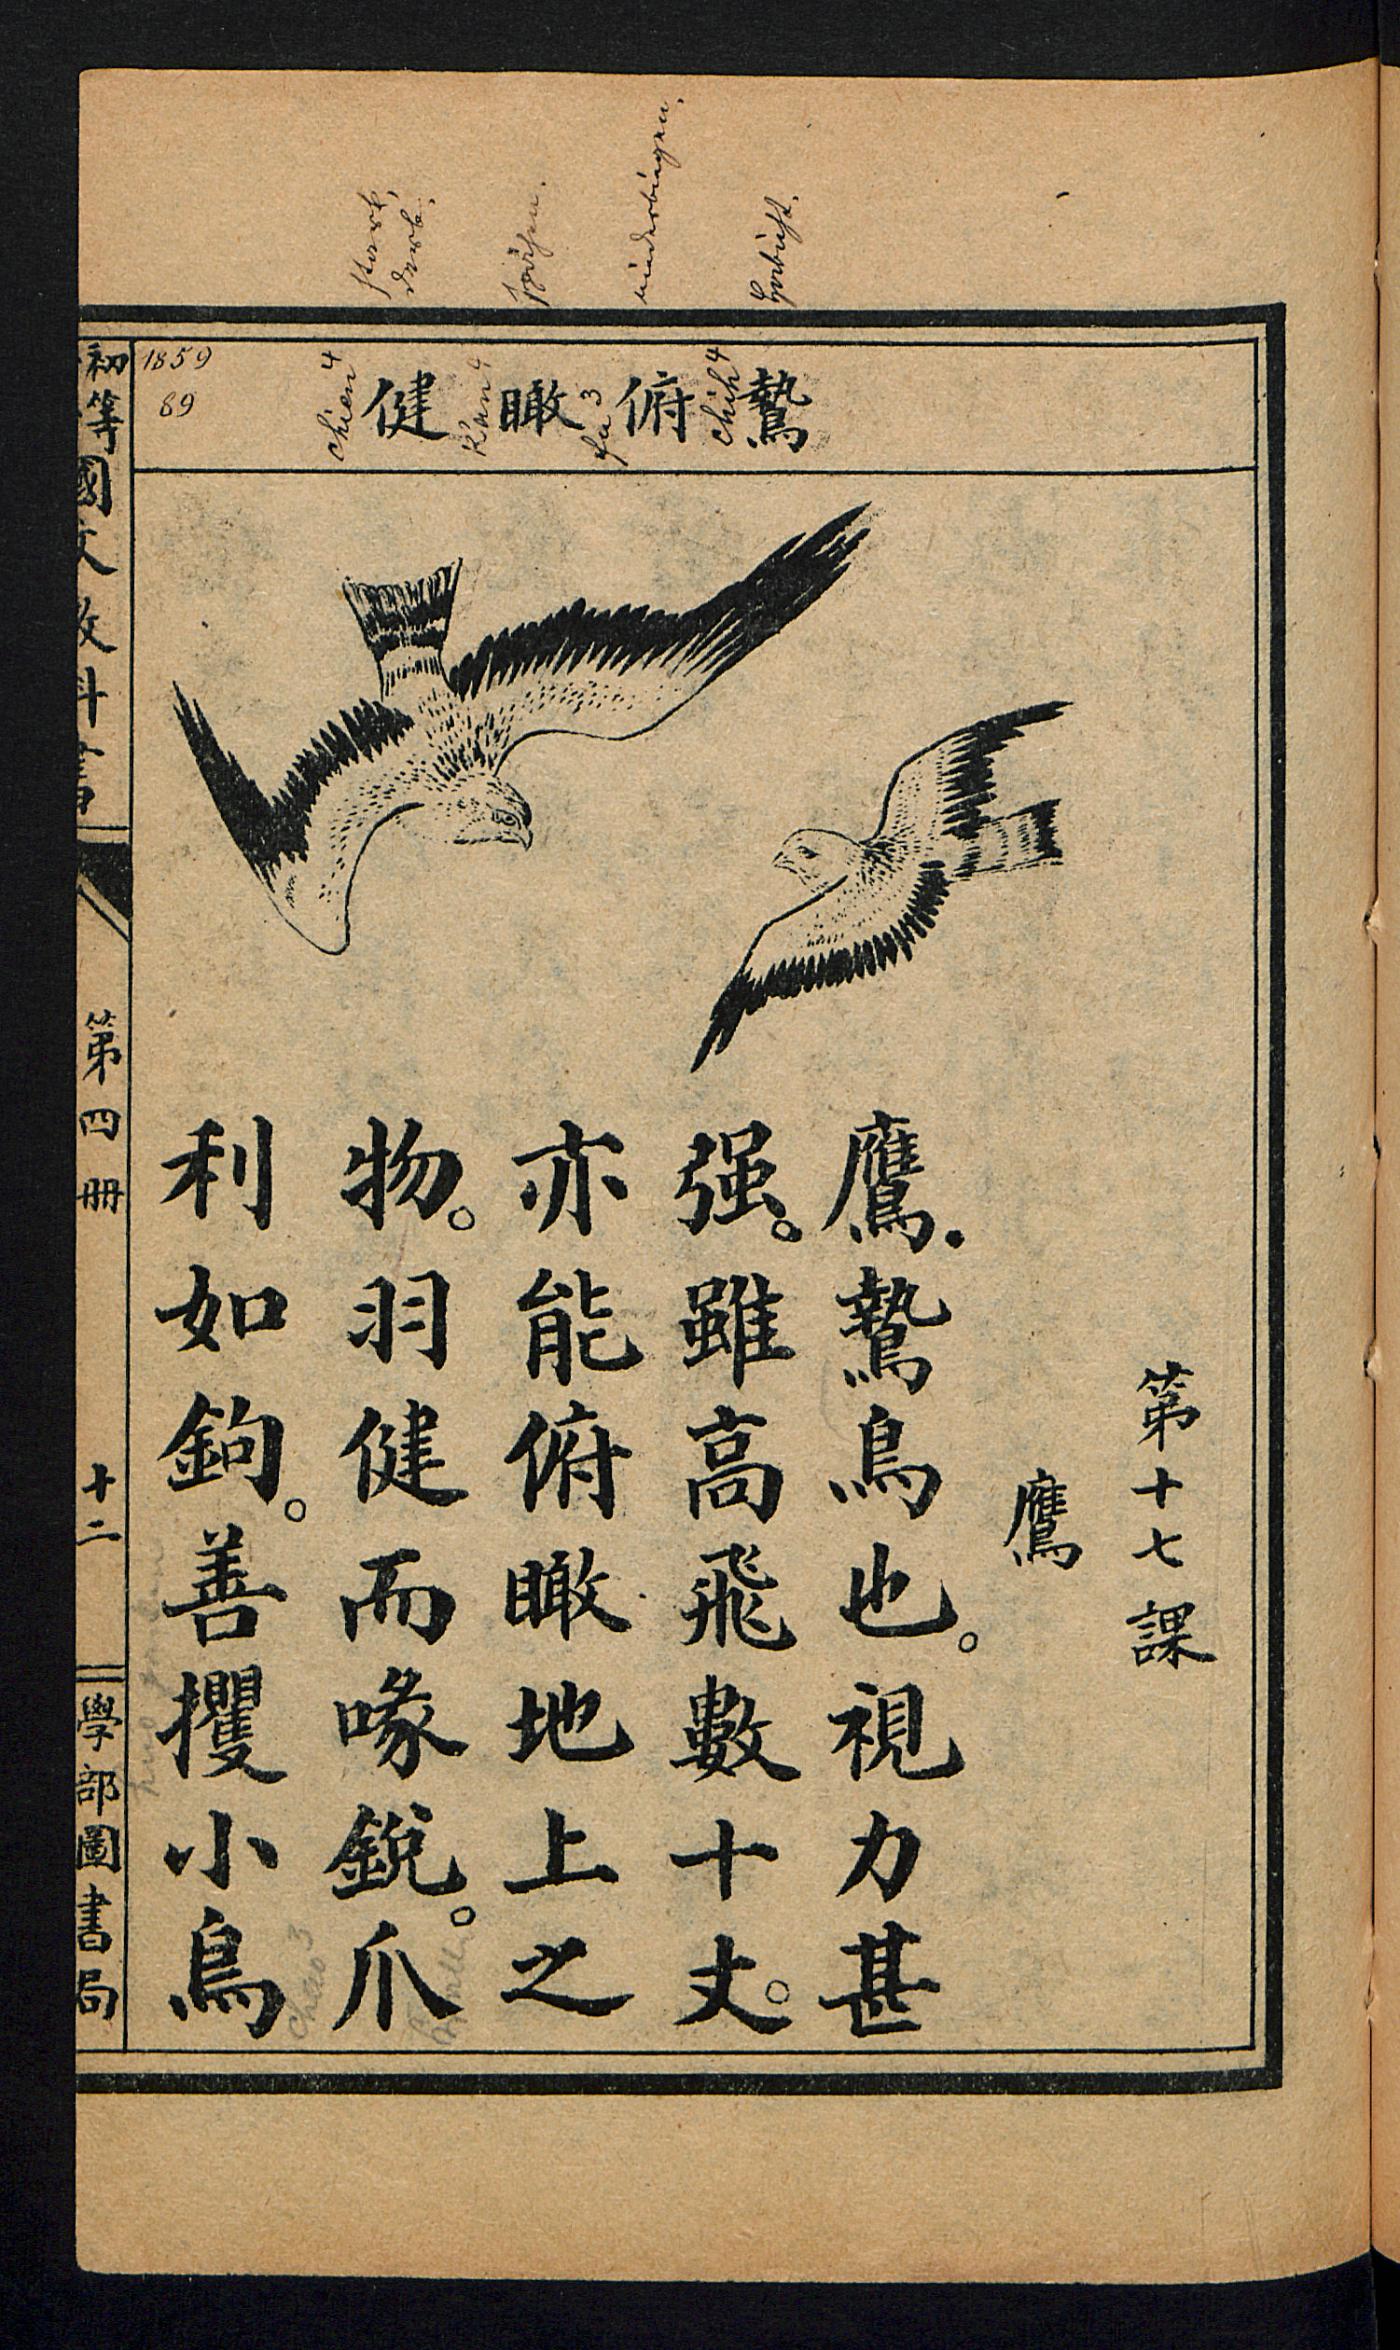 第十七課
鷹
鷙俯瞰健
chih⁴
fu³
k'an⁴
chien⁴
Habicht.
niederbiegen.
spähen.
stark,
derb.
1859
89
鷹.鷙鳥也。視力甚
强。雖高飛數十丈。
亦能俯瞰地上之
物。羽健而喙銳。爪
利如鉤。善攫小鳥
chao³
初等國文教科書
第四册
十二
學部圖書局